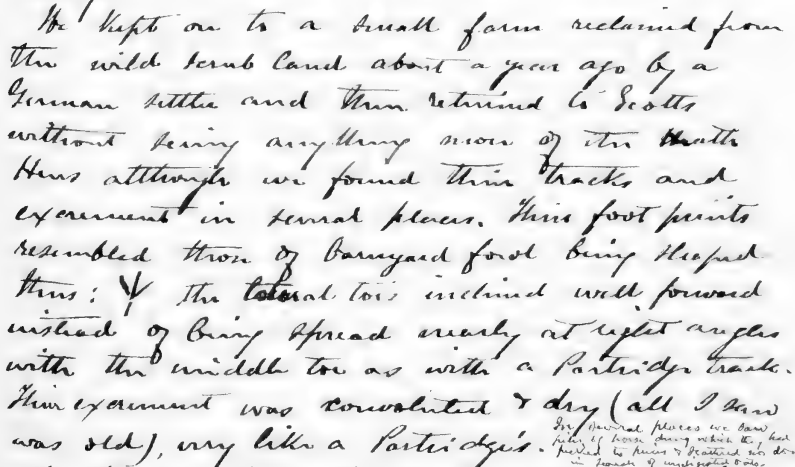 We kept on to a small farm reclaimed from
the wild scrub land about a year ago by a
German settler and then returned to Scotts
without seeing anything more of the Heath
Hens although we found their tracks and
excrement in several places. Their foot prints
resembled those of barnyard fowl being shaped
thus: the lateral toes inclined well forward
instead of being spread nearly at right angles
with the middle toe as with a Partridge track.
Their excrement was convoluted & dry (all I saw
was old), very like a Partridge's.
In several places we saw
piles of horse dung which they had
picked to pieces & scattered
in search of undigested oats.